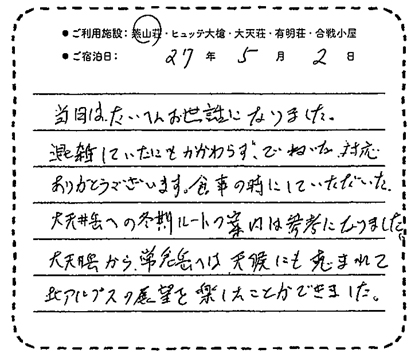 ●ご利用施設:燕山荘・ヒュッテ大槍・大天荘・有明荘・合戦小屋
●ご宿泊日: 27 年 5 月 2 日
当日は、たいへんお世話になりました。
混雑していたにもかかわらず、ていねいな対応
ありがとうございます。食事の時にしていただいた
大天井岳への冬期ルートの案内は参考になりました。
大天井岳から、常念岳へは、天候にも恵まれて
北アルプスの展望を楽しむことができました。